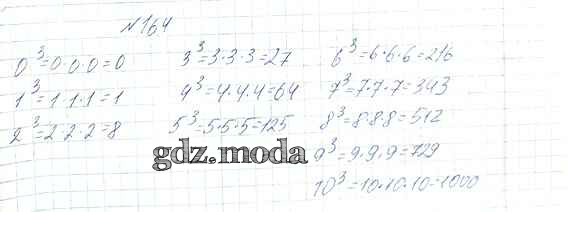 №164
0³=0·0·0=0
1³=1·1·1=1
2³=2·2·2=8
3³=3·3·3=27
4³=4·4·4=64
5³=5·5·5=125
6³=6·6·6=216
7³=7·7·7=343
8³=8·8·8=512
9³=9·9·9=729
10³=10·10·10=1000
gdz.moda